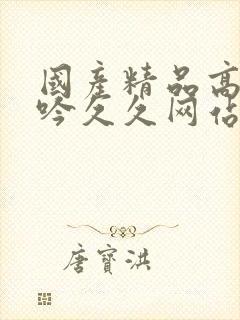 國產精品高
吟久久网佔
唐寶洪